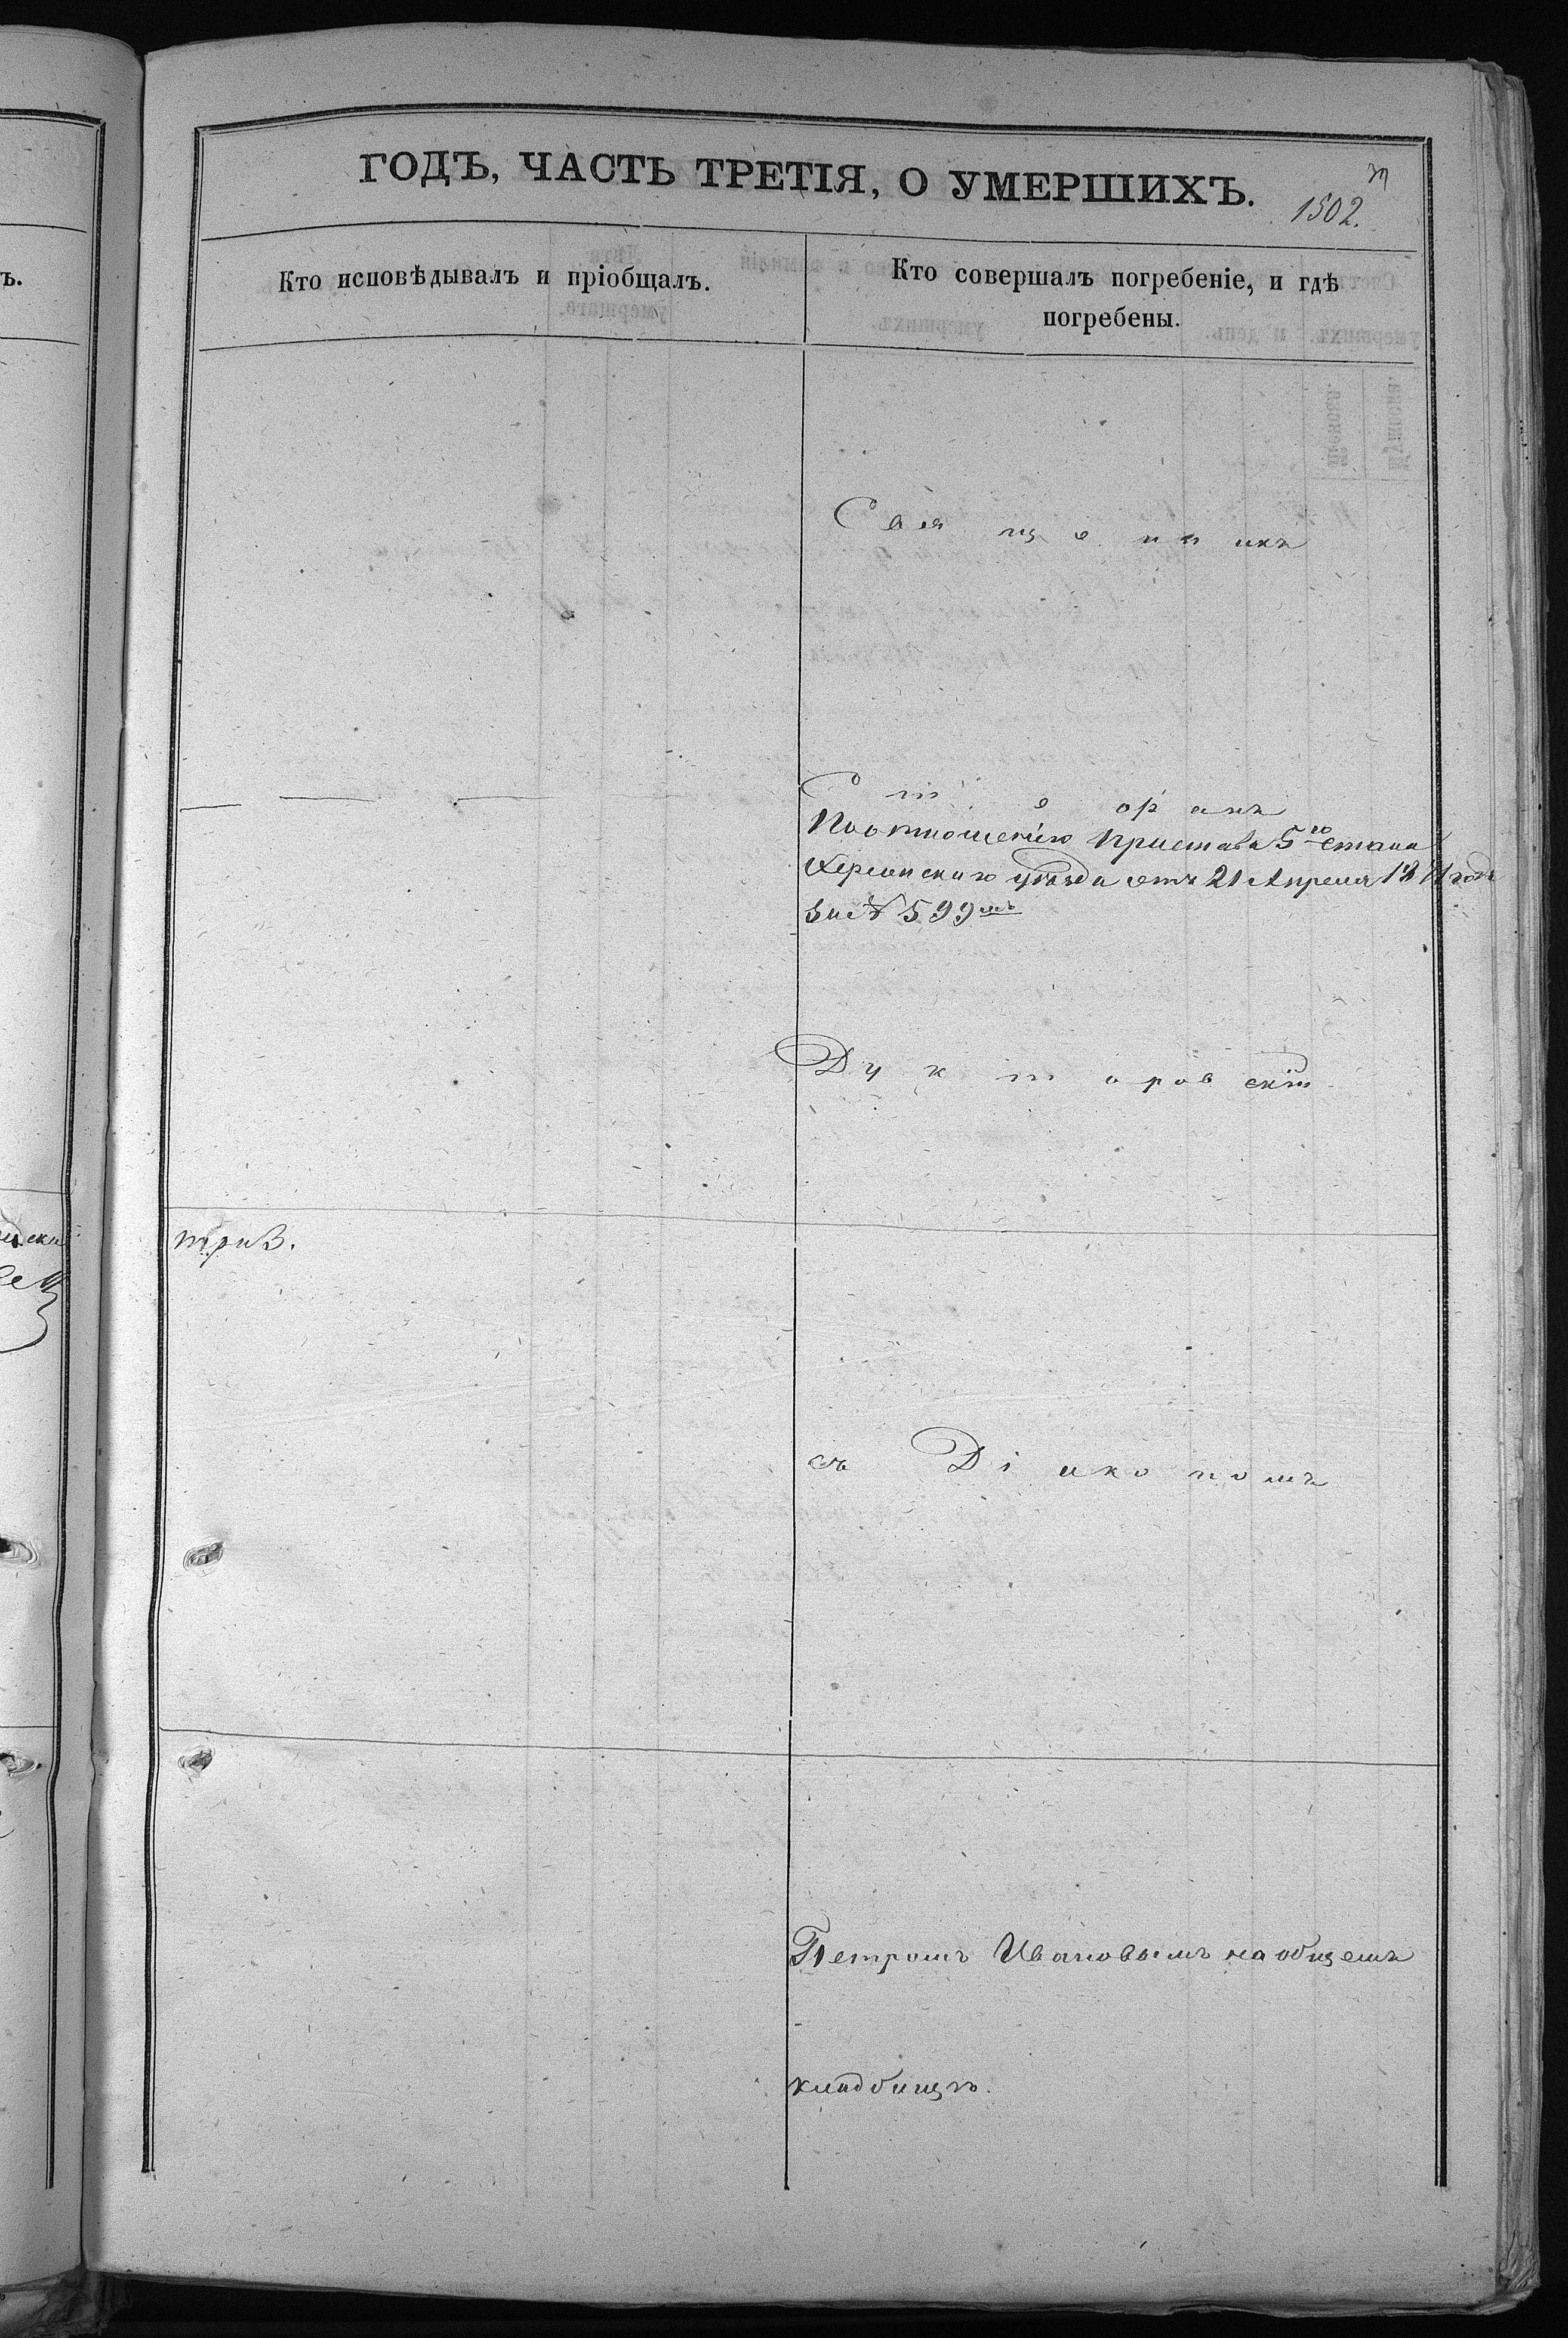 ГОДЪ, ЧАСТЬ ТРЕТІЯ, О УМЕРШИХЪ.
1502.
Кто исповѣдывалъ и пріобщалъ.
Кто совершалъ погребеніе, и гдѣ
погребены.
ъ.
Священникъ
Стефанъ
По отношенію Пристава 5го стана
Херсонскаго уѣзда отъ 21 Апреля 1871 года
за № 599мъ
Дукторовскій
съ Діакономъ
Петромъ Ивановымъ на общемъ
кладбищѣ.